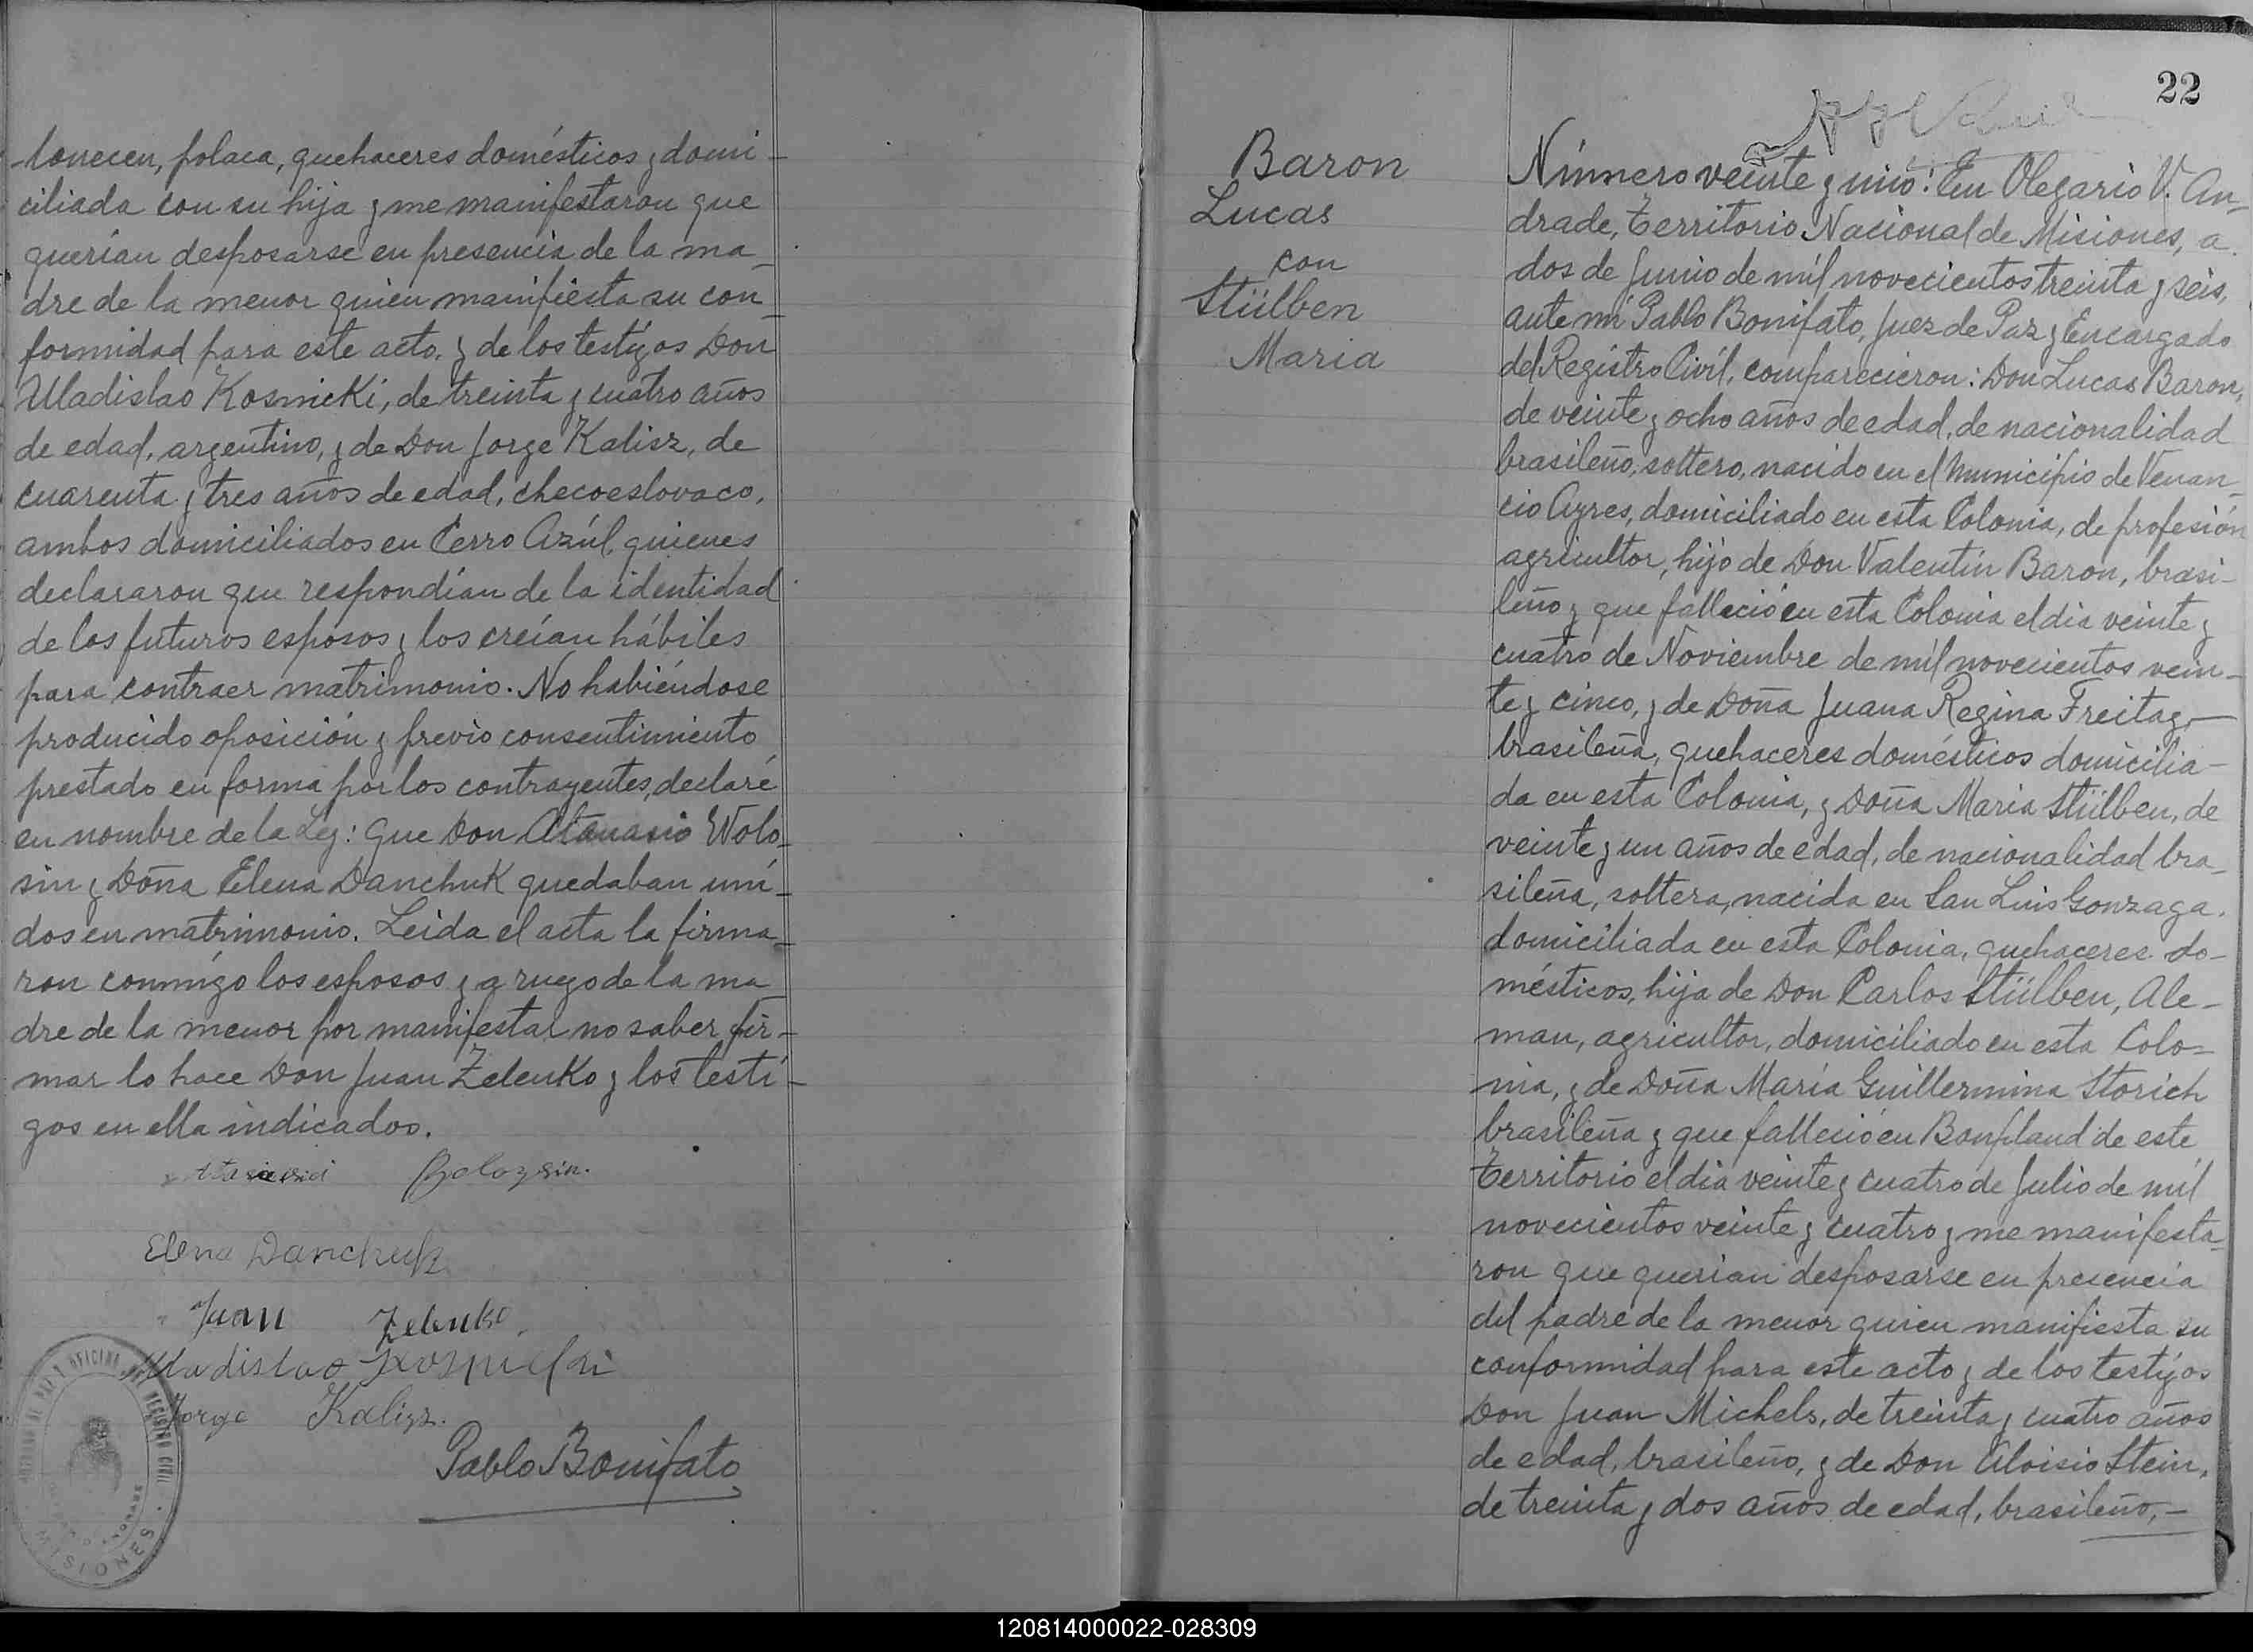 lonecen, polaca, quehaceres domésticos y domi-
ciliada con su hija y me manifestaron que
querían desposarse en presencia de la ma-
dre de la menor quien manifiesta su con-
formidad para este acto, y de los testigos Don
Uladislao Kosnicki, de treinta y cuatro años
de edad, argentino, y de Don Jorge Kalisz, de
cuarenta y tres años de edad, checoeslovaco,
ambos domiciliados en Cerro Azúl, quienes
declararon que respondían de la identidad
de los futuros esposos y los creían hábiles
para contraer matrimonio. No habiéndose
producido oposición y previo consentimiento
prestado en forma por los contrayentes, declaré
en nombre de la Ley: Que Don Atanasio Wolo-
sin y Doña Elena Danchuk quedaban uni-
dos en matrimonio. Leida el acta la firma-
ron conmigo los esposos y a ruego de la ma-
dre de la menor por manifestar no saber fir-
mar lo hace Don Juan Zelenko y los testi-
gos en ella indicados.
Bolozsin.
Elena Danchuk
Juan Zelenko
Uladislao
Jorge Kalisz.
Pablo Bonifato
OFICINA DEL REGISTRO CIVIL
MISIONES
22
Baron
Lucas
con
Stülben
Maria
Número veinte y uno: En Olegario V. An-
drade, Territorio Nacional de Misiones, a
dos de Junio de mil novecientos treinta y seis,
ante mí Pablo Bonifato, Juez de Paz y Encargado
del Registro Civil, comparecieron: Don Lucas Baron,
de veinte y ocho años de edad, de nacionalidad
brasileño, soltero, nacido en el Municipio de Venan-
cio Ayres, domiciliado en esta Colonia, de profesión
agricultor, hijo de Don Valentín Baron, brasi-
leño y que falleció en esta Colonia el dia veinte y
cuatro de Noviembre de mil novecientos vein-
te y cinco, y de Doña Juana Regina Freitag,
brasileña, quehaceres domésticos domicilia-
da en esta Colonia, y Doña Maria Stülben, de
veinte y un años de edad, de nacionalidad bra-
sileña, soltera, nacida en San Luis Gonzaga,
domiciliada en esta Colonia, quehaceres do-
mésticos, hija de Don Carlos Stülben, Ale-
man, agricultor, domiciliado en esta Colo-
nia, y de Doña María Guillermina Storich
brasileña y que falleció en Bonpland de este
Territorio el dia veinte y cuatro de Julio de mil
novecientos veinte y cuatro y me manifesta-
ron que querian desposarse en presencia
del padre de la menor quien manifiesta su
conformidad para este acto y de los testigos
Don Juan Michels, de treinta y cuatro años
de edad, brasileño, y de Don Aloisio Stein,
de treinta y dos años de edad, brasileño,-
120814000022-028309